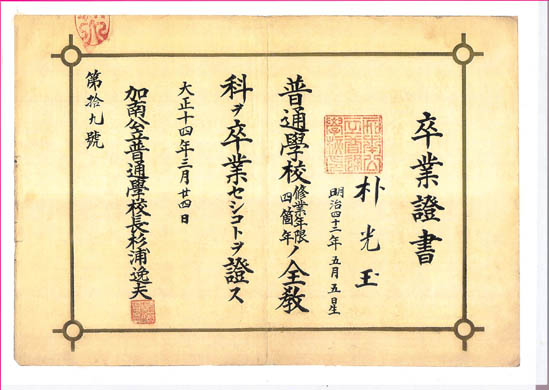 卒業證書
朴光玉
明治四十二年五月五日生
普通學校修業年限四箇年ノ全教
科ヲ卒業セシコトヲ證ス
大正十四年三月廿四日
加南公立普通學校長杉浦逸夫
第拾九號